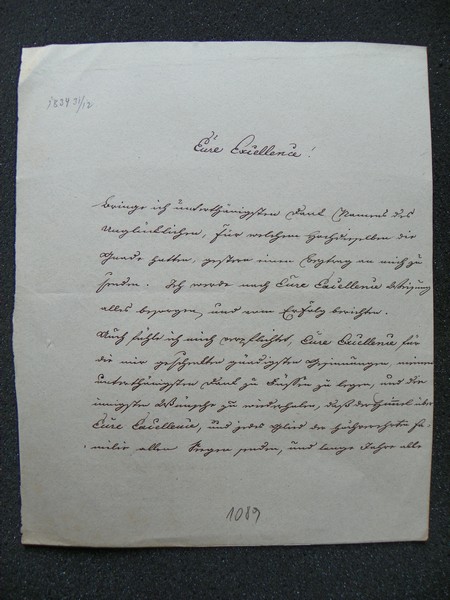 1834 31/12
Eure Excellence!
Bringe ich unterthänigsten Dank Namens des
Unglücklichen, für welchen Hochdieselben die
Gnade hatten, gestern einen Beytrag an mich zu
senden. Ich werde nach Eure Excellence Weisung
alles besorgen, und vom Erfolg berichten.
Auch fühle ich mich verpflichtet, Eure Excellence für
die mir geschenkten gnädigsten Gesinnungen, meinen
unterthänigsten Dank zu Füssen zu legen, und die
innigsten Wünsche zu wiederholen, daß der Himmel über
Eure Excellence, und jedes Glied der hochverehrten Fa-
milie allen Segen senden, und lange Jahre alle
1089